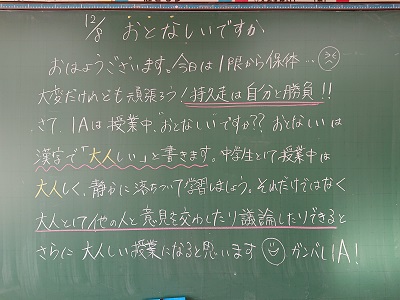 12/8 おとなしいですか
おはようございます。今日は1限から保体…
大変だけれども頑張ろう！持久走は自分と勝負!!
さて、1Aは授業中、"おとなしい"ですか?? おとなしいは
漢字で「大人しい」と書きます。中学生として授業中は
大人しく、静かに落ちついて学習しましょう。それだけではなく
大人として他の人と意見を交わしたり議論したりできると
さらに大人しい授業になると思います ガンバレ1A!